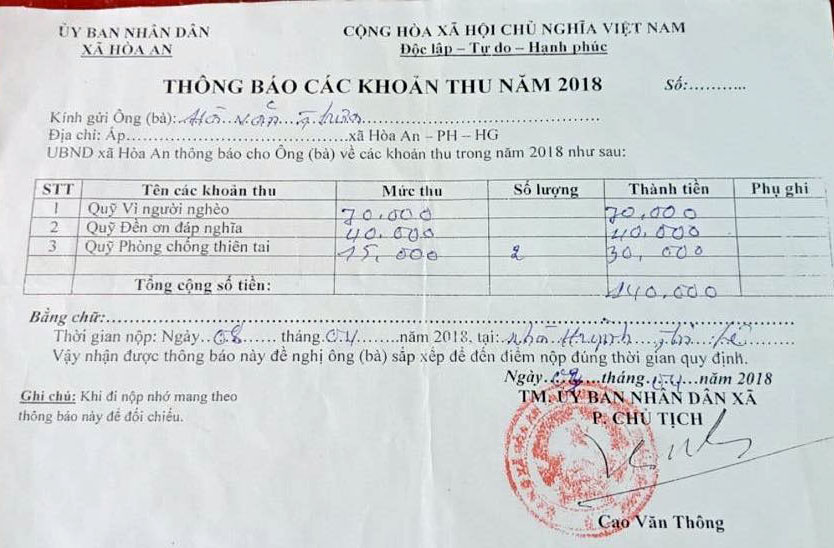 ỦY BAN NHÂN DÂN
XÃ HÒA AN
CỘNG HÒA XÃ HỘI CHỦ NGHĨA VIỆT NAM
Độc lập – Tự do – Hạnh phúc
THÔNG BÁO CÁC KHOẢN THU NĂM 2018 Số:...........
Kính gửi Ông (bà): Hồ Văn
Địa chỉ: Ấp.......................................xã Hòa An – PH – HG
UBND xã Hòa An thông báo cho Ông (bà) về các khoản thu trong năm 2018 như sau:
STT Tên các khoản thu Mức thu Số lượng Thành tiền Phụ ghi
1 Quỹ Vì người nghèo 70.000 70,000
2 Quỹ Đền ơn đáp nghĩa 40.000 40.000
3 Quỹ Phòng chống thiên tai 15,000 2 30,000
Tổng cộng số tiền: 140.000
Bằng chữ:
Thời gian nộp: Ngày..08...... tháng.04........năm 2018, tại: nhà Huỳnh
Vậy nhận được thông báo này đề nghị ông (bà) sắp xếp để đến điểm nộp đúng thời gian quy định.
Ngày........tháng.04...năm 2018
Ghi chú: Khi đi nộp nhớ mang theo
thông báo này để đối chiếu.
TM. ỦY BAN NHÂN DÂN XÃ
P. CHỦ TỊCH
Cao Văn Thông